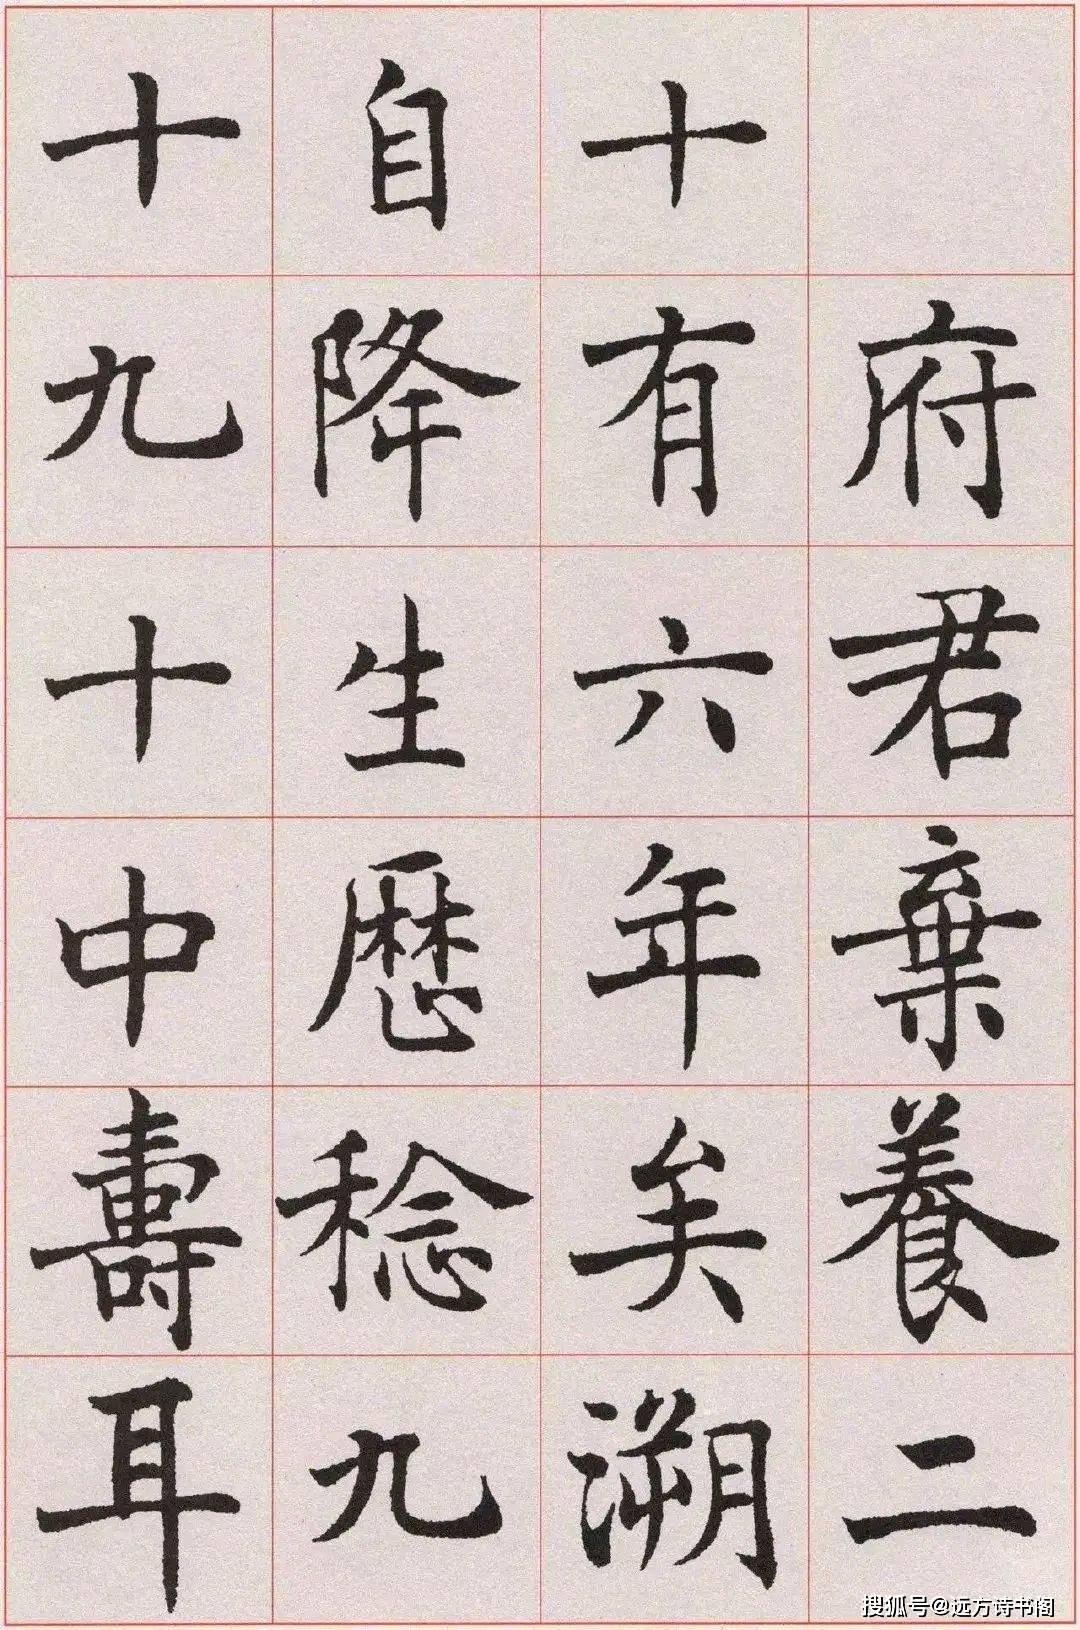 府君棄養二
十有六年矣溯
自降生歴稔九
十九十中壽耳
搜狐号@远方诗书阁